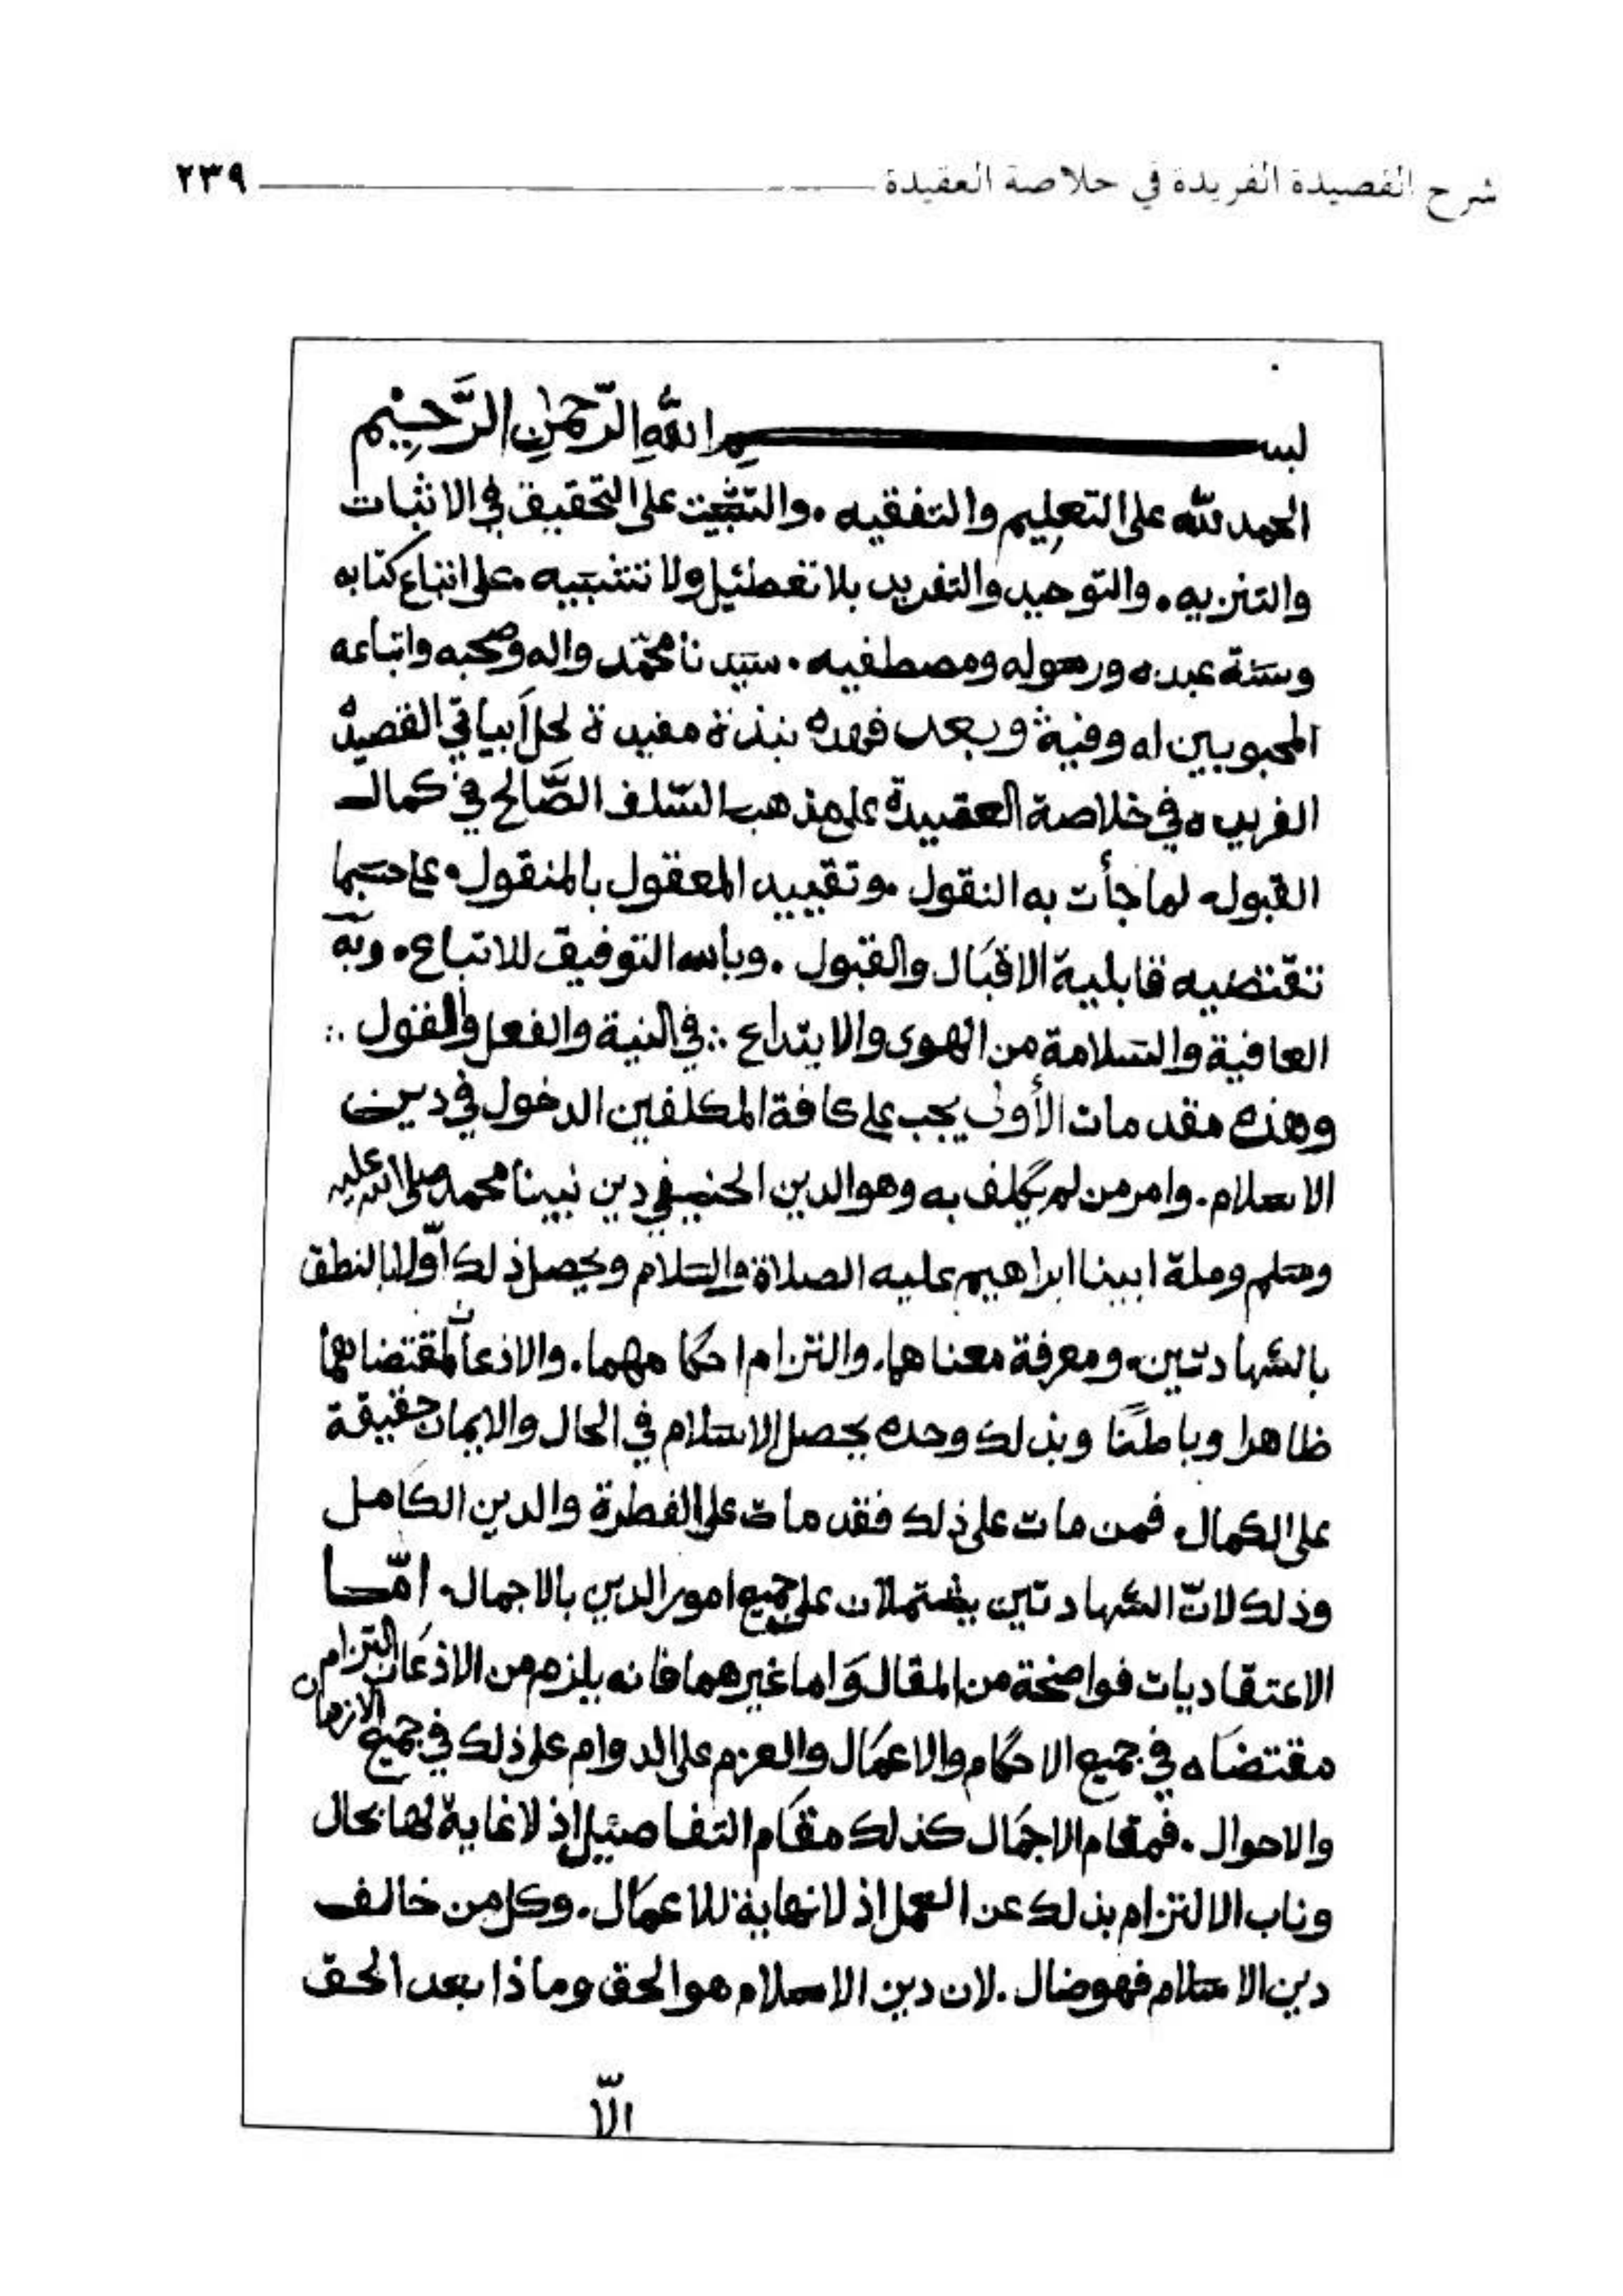 شرح القصيدة الفريدة في خلاصة العقيدة ٢٣٩
بسم الله الرّحمٰن الرَّحِيْم
الحمد لله على التعليم والتفقيه . والتثبيت على التحقيق في الاثبات
والتنزيه . والتوحيد والتفريد بلا تعطيل ولا تشبيه . على اتباع كتابه
وسنة عبده ورسوله ومصطفيه . سيدنا محمّد واله وصحبه واتباعه
المحبوبين له وفيه وبعد فهذه نبذة مفيدة لحل أبيات القصيدة
الفريده في خلاصة العقيدة على مذهب السّلف الصَّالح في كمال
القبول لما جأت به النقول . وتقييد المعقول بالمنقول . على حسبما
تقتضيه قابلية الاقبَال والقبول . وبالله التوفيق للاتباع . وبه
العافية والسلامة من الهوى والابتداع ∴ في النية والفعل والقول ∴
وهذه مقدمات الأولى يجب على كافة المكلفين الدخول في دين
الاسلام . وامر من لم يكلف به وهو الدين الحنيفي دين نبينا محمد صلى الله عليه
وسلم وملة ابينا ابراهيم عليه الصلاة والسلام ويحصل ذلك اوّلا بالنطق
بالشهادتين . ومعرفة معناهما . والتزام احكامهما . والاذعان لمقتضاهما
ظاهرا وباطنًا وبذلك وحده يحصل الاسلام في الحال والايمان حقيقة
على الكمال فمن مات على ذلك فقد مات على الفطرة والدين الكامل
وذلك لانّ الشهادتين يشتملان على جميع امور الدين بالاجمال . امّا
الاعتقاديات فواضحة من المقال وَاما غيرهما فانه يلزم من الاذعَان التزام
مقتضَاه في جميع الاحكام والاعمَال والعزم على الدوام على ذلك في جميع الازمان
والاحوال . فمقام الاجمَال كذلك مقَام التفاصيل إذ لا غاية لها بحال
وناب الالتزام بذلك عن العمل اذ لا نهاية للاعمَال . وكل من خالف
دين الاسلام فهو ضال . لان دين الاسلام هو الحق وماذا بعد الحق
الاّ